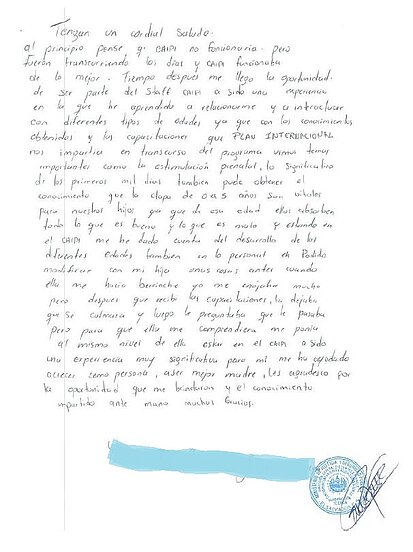 Tengan un cordial Saludo.
al principio pense, q' CAIPI no funcionaria. pero
fueron transcurriendo los dias y CAIPI funcionaba
de lo mejor. Tiempo despues me llego la oportunidad.
de ser parte del Staff CAIPI a sido una experiencia
en la que he aprendido a relacionarme y a interactuar
con diferentes tipos de edades ya que con los conocimientos
obtenidos y las capacitaciones que PLAN INTERNACIONAL
nos impartia en transcurso del programa vimos temas
importantes como la estimulación prenatal, lo significativo
de los primeros mil dias tambien pude obtener el
conocimiento que la etapa de 0 a 5 años son vitales
para nuestros hijos ya que de esa edad ellos absorben
todo lo que es bueno y lo que es malo y estando en
el CAIPI me he dado cuenta del desarrollo de las
diferentes edades tambien en lo personal en Partido
modificar con mi hija unas cosas antes cuando
ella me hacia berrinche yo me enojaba mucho
pero despues que recibi las capacitaciones, la dejaba
que se calmara y luego le preguntaba que le pasaba
pero para que ella me comprendiera me ponia
al mismo nivel de ella estar en el CAIPI a sido
una experiencia muy significativa para mi me ha ayudado
a crecer como persona, a ser mejor madre, les agradesco por
la oportunidad que me brindaron y el conocimiento
impartido ante mano muchas Gracias.
EL SALVADOR